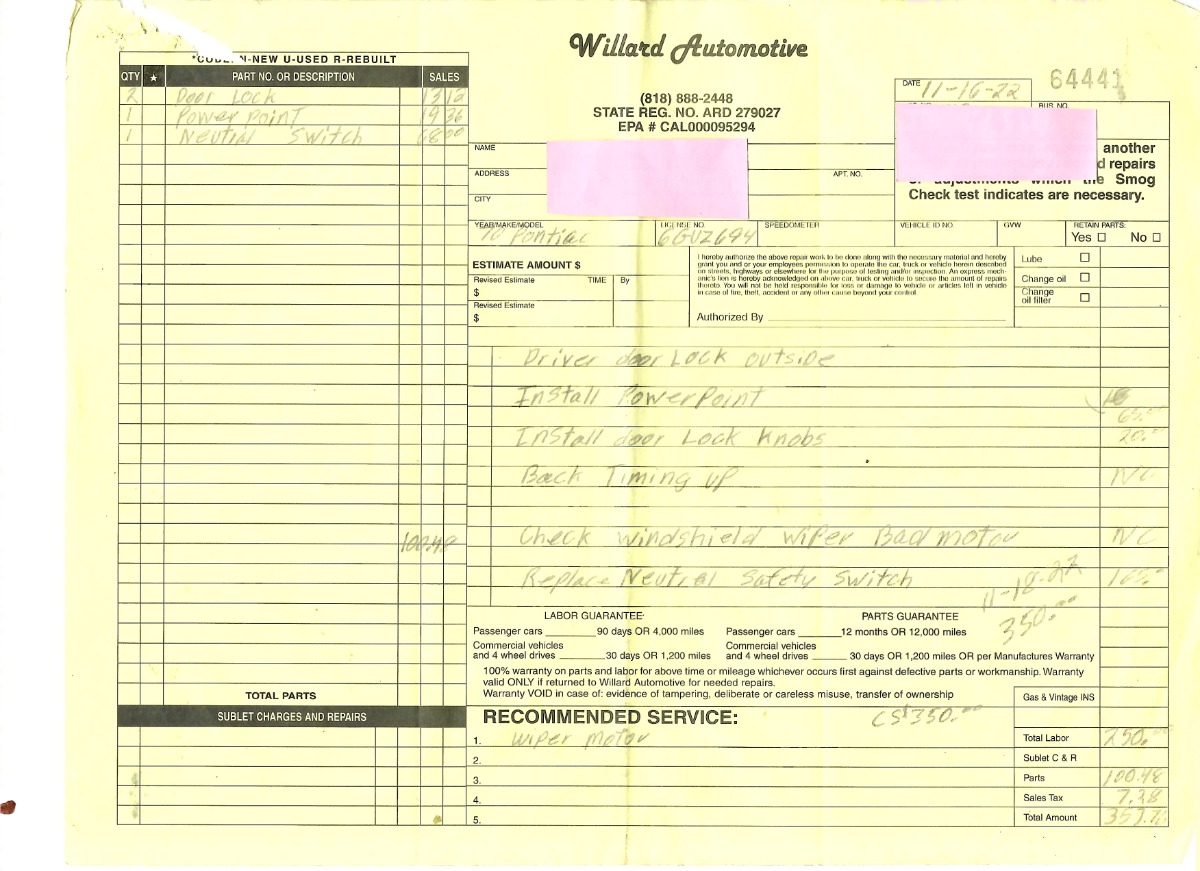 Willard Automotive
(818) 888-2448
STATE REG. NO. ARD 279027
EPA # CAL000095294
DATE 11-16-22
64441
N-NEW U-USED R-REBUILT
QTY ★ PART NO. OR DESCRIPTION SALES
2 Door Lock 13 12
1 Powerpoint 19 36
1 Neutral Switch 68 00
100.48
TOTAL PARTS
SUBLET CHARGES AND REPAIRS
BUS. NO.
another
repairs
the Smog
Check test indicates are necessary.
NAME
ADDRESS APT. NO.
CITY
YEAR/MAKE/MODEL LICENSE NO. SPEEDOMETER VEHICLE ID NO. GVW RETAIN PARTS:
Pontiac 6GUZ694 Yes ☐ No ☐
ESTIMATE AMOUNT $
Revised Estimate TIME By
$
Revised Estimate
$
I hereby authorize the above repair work to be done along with the necessary material and hereby
grant you and or your employees permission to operate the car, truck or vehicle herein described
on streets, highways or elsewhere for the purpose of testing and/or inspection. An express mech-
anic's lien is hereby acknowledged on above car, truck or vehicle to secure the amount of repairs
thereto. You will not be held responsible for loss or damage to vehicle or articles left in vehicle
in case of fire, theft, accident or any other cause beyond your control
Authorized By
Lube ☐
Change oil ☐
Change
oil filter ☐
Driver door Lock outside
Install PowerPoint 65.00
Install door Lock Knobs 20.00
Back Timing up NC
Check windshield wiper Bad motor NC
Replace Neutral Safety Switch 165.00
11-18-22
350.00
LABOR GUARANTEE: PARTS GUARANTEE
Passenger cars 90 days OR 4,000 miles Passenger cars 12 months OR 12,000 miles
Commercial vehicles Commercial vehicles
and 4 wheel drives 30 days OR 1,200 miles and 4 wheel drives 30 days OR 1,200 miles OR per Manufactures Warranty
100% warranty on parts and labor for above time or mileage whichever occurs first against defective parts or workmanship. Warranty
valid ONLY if returned to Willard Automotive for needed repairs.
Warranty VOID in case of: evidence of tampering, deliberate or careless misuse, transfer of ownership
Gas & Vintage INS
RECOMMENDED SERVICE: CS $350.00
1. wiper motor
2.
3.
4.
5.
Total Labor 250.00
Sublet C & R
Parts 100.48
Sales Tax 7.28
Total Amount 357.76